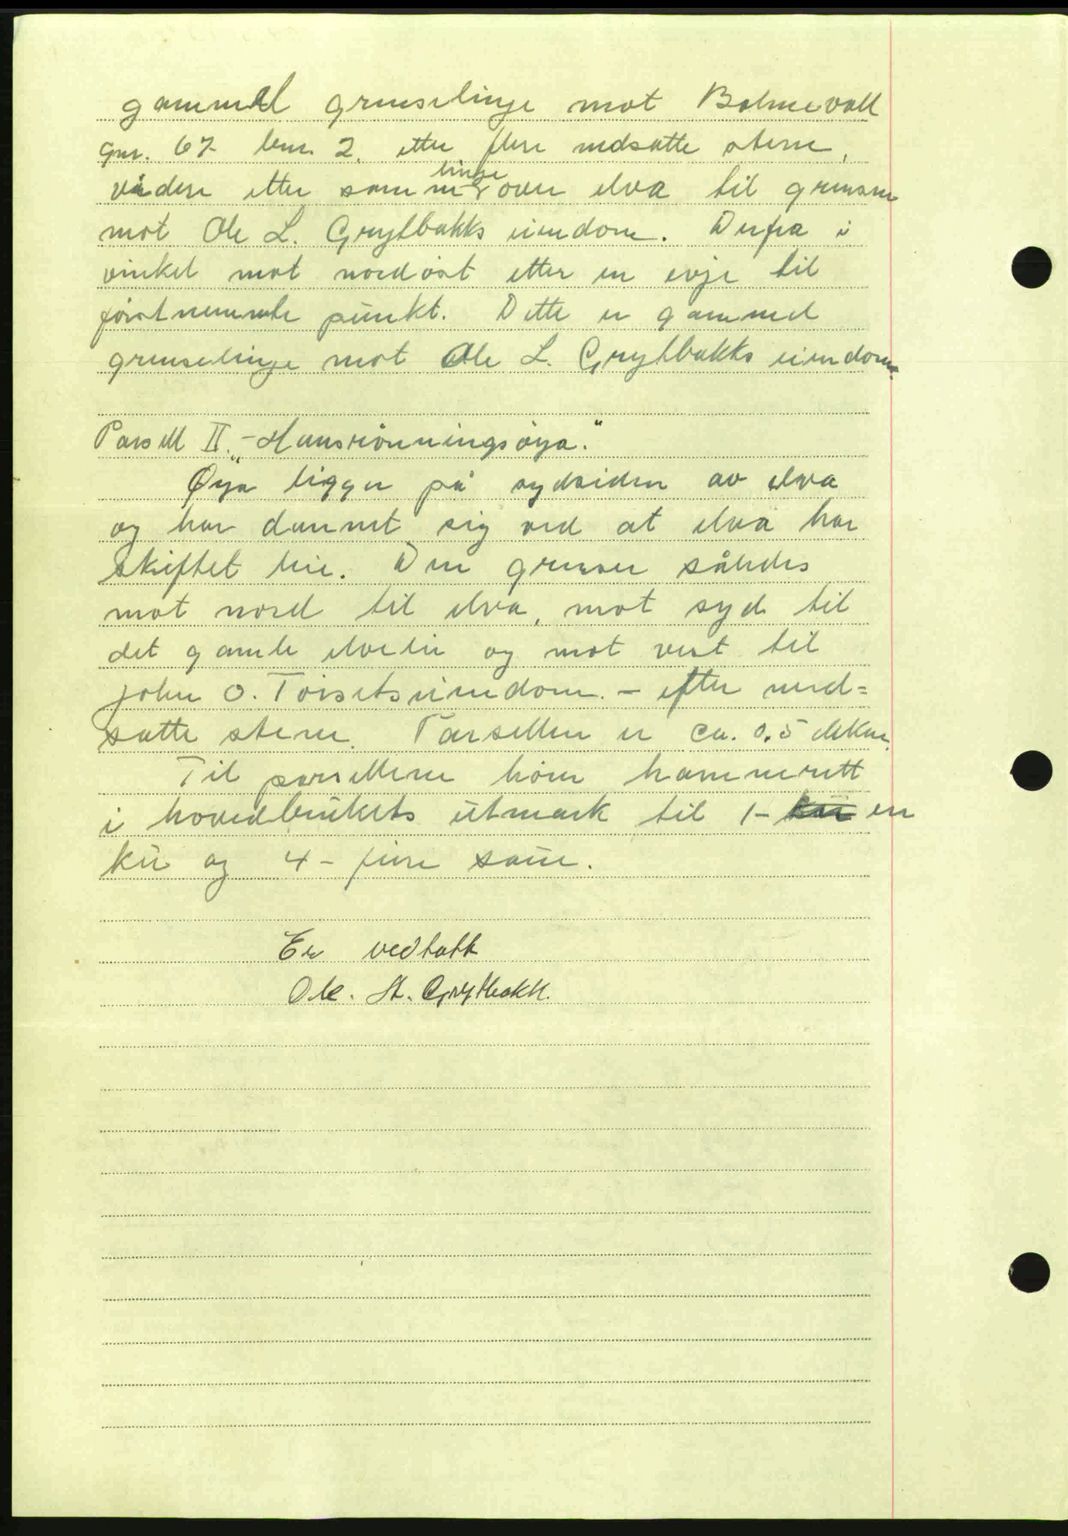 gammel grenselinje mot Bolmevoll
gnr. 67 bnr. 2. etter flere nedsatte stene,
videre etter samme linje over elva til grensen
mot Ole L. Grytbakks eiendom. Derfra i
vinkel mot nordöst etter en evje til
förstnevnte punkt. Dette er gammel
grenselinje mot Ole L. Grytbakks eiendom.
Parsell II. „Hansrönningsöya."
Öya ligger på sydsiden av elva
og har dannet sig ved at elva har
skiftet leie. Den grenser således
mot nord til elva, mot syd til
det gamle elveleie og mot vest til
John O. Toisets eiendom. – efter ned=
satte stene. Parsellen er ca. 0,5 dekar.
Til parsellene hörer hamnerett
i hovedbrukets utmark til 1- en
ku og 4 – fire saue.
Er vedtatt
Ole. H. Grytbakk.